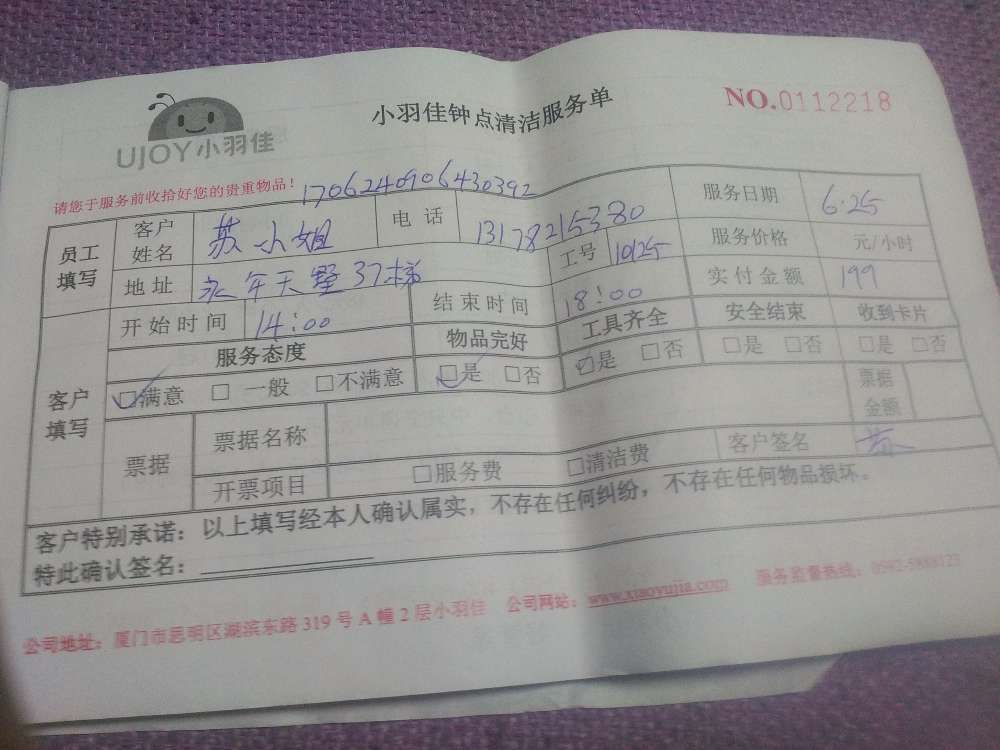 UJOY小羽佳
小羽佳钟点清洁服务单
NO.0112218
请您于服务前收拾好您的贵重物品！
1706240906430392
员工填写 客户姓名 苏小姐 电话 13178215380 服务日期 6.25
地址 永年天墅37梯 工号 10125 服务价格 元/小时
开始时间 14:00 结束时间 18:00 实付金额 199
客户填写 服务态度 物品完好 工具齐全 安全结束 收到卡片
□满意 □一般 □不满意 □是 □否 □是 □否 □是 □否 □是 □否
票据 票据名称 票据金额
开票项目 □服务费 □清洁费 客户签名 苏
客户特别承诺：以上填写经本人确认属实，不存在任何纠纷，不存在任何物品损坏。
特此确认签名：
公司地址：厦门市思明区湖滨东路319号A幢2层小羽佳 公司网站：www.xiaoyujia.com 服务监督热线：0592-5888123